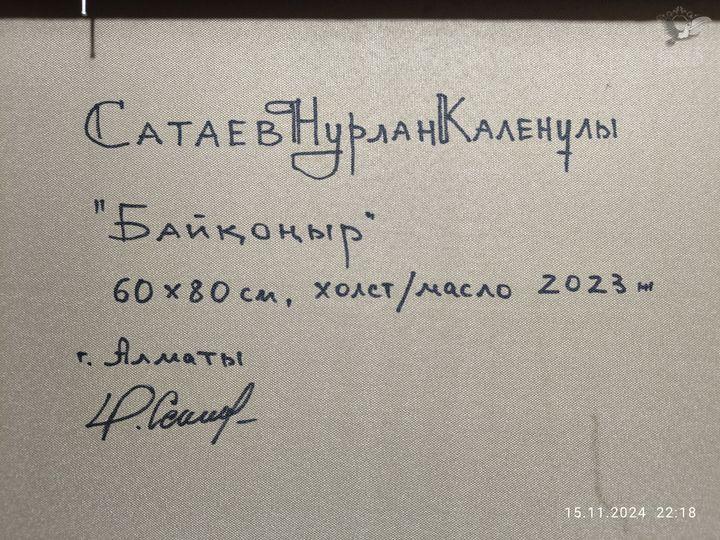 Сатаев Нурлан Каленұлы
"Байқоңыр"
60 х 80 см, холст/масло 2023 ж
г. Алматы
15.11.2024 22:18